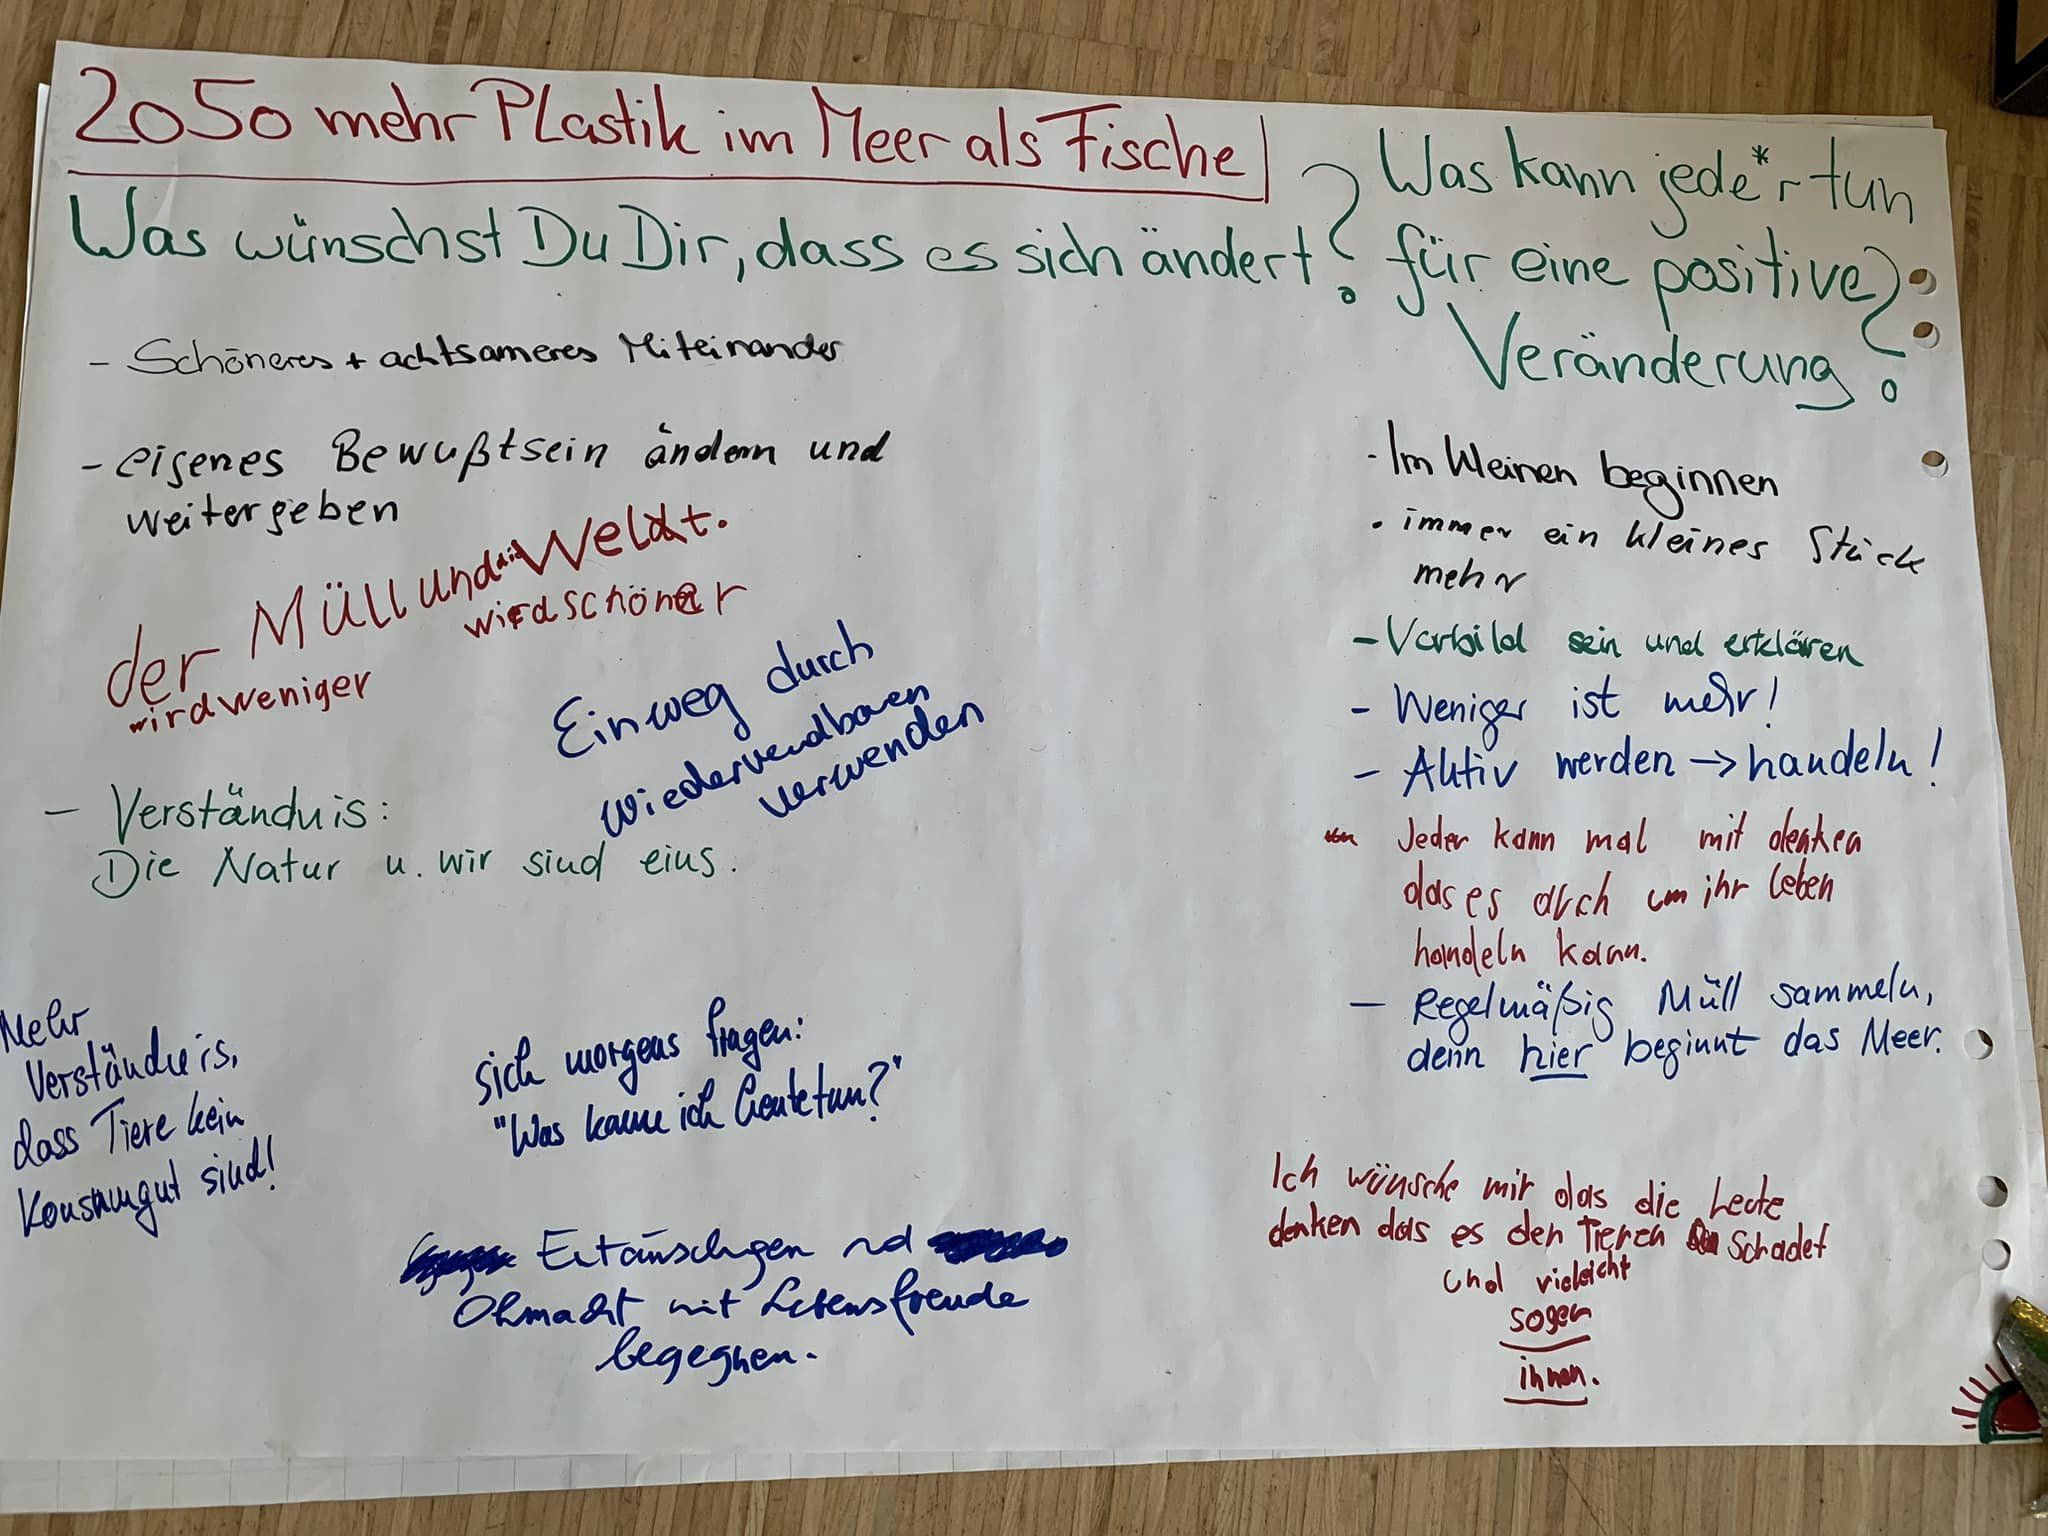 2050 mehr Plastik im Meer als Fische
Was wünschst Du Dir, dass es sich ändert?
- Schöneres + achtsameres Miteinander
- eigenes Bewußtsein ändern und
weitergeben
der Müll und die Weldt.
wird weniger wird schöner
Einweg durch
wiederverwendbaren
verwenden
- Verständnis:
Die Natur u. wir sind eins.
Mehr
Verständnis,
dass Tiere kein
Konsumgut sind!
sich morgens fragen:
"Was kann ich heute tun?"
Ohmacht mit Lebensfreude
begegnen.
Was kann jede*r tun
für eine positive
Veränderung?
- Im Kleinen beginnen
• immer ein kleines Stück
mehr
- Vorbild sein und erklären
- Weniger ist mehr!
- Aktiv werden → handeln!
Jeder kann mal mit denken
das es auch um ihr leben
handeln kann.
- Regelmäßig Müll sammeln,
denn hier beginnt das Meer.
Ich wünsche mir das die Leute
denken das es den Tieren Schadet
und vieleicht
sogar
ihnen.